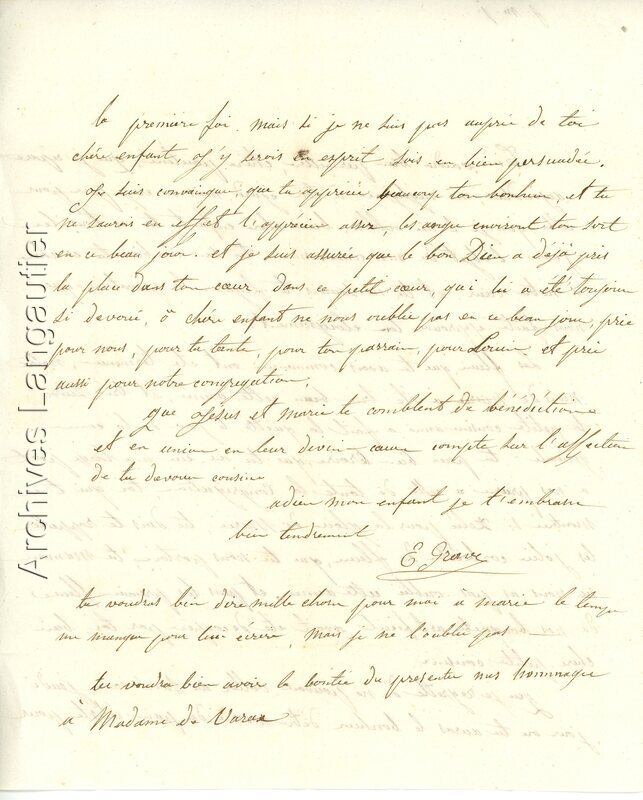 la première foi. mais si je ne suis pas auprée de toi
chère enfant, j'y serois en esprit sois en bien persuadée.
je suis convaingue, que tu appréciée beaucoup ton bonheur, et tu
ne saurois en effet l'apprécier assez, les ange environt ton sort
en ce beau jour. et je suis assurée que le bon Dieu a déjà pris
la place dans ton cœur. dans ce petit cœur, qui lui a été toujour
si devoué, ô chére enfant ne nous oublie pas en ce beau jour, prie
pour nous, pour ta tante, pour ton parrain, pour Louise et prie
aussi pour notre congregation.
que Jésus et marie te comblent de bénédiction
et en union en leur devin cœur compte sur l'affection
de ta devouée cousine
adieu mon enfant je t'embrasse
bien tendrement
E Greave
tu voudras bien dire mille chose pour moi a marie le temps
me manque pour lui écrire, mais je ne l'oublie pas
tu voudra bien avoir la bontée de presenter mes hommage
à Madame de Varax
Archives Langautier